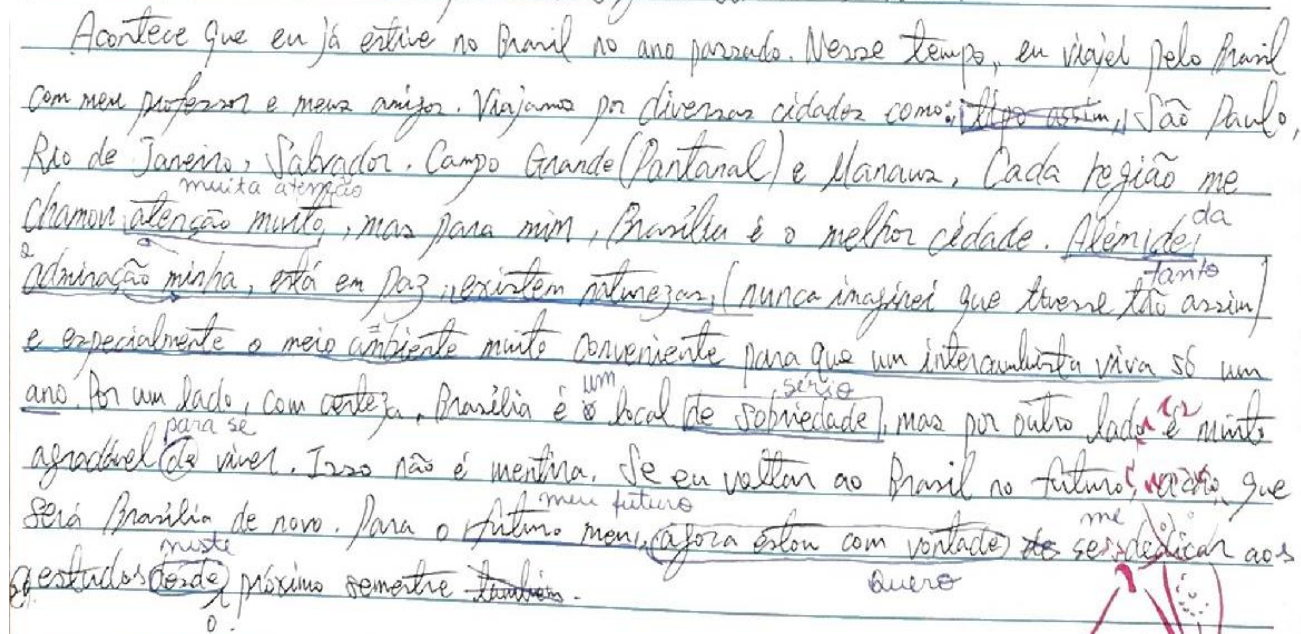 Acontece que eu já estive no Brasil no ano passado. Nesse tempo, eu viajei pelo Brasil
com meu professor e meus amigos. Viajamos por diversas cidades como: tipo assim, São Paulo,
Rio de Janeiro, Salvador, Campo Grande (Pantanal) e Manaus, Cada região me
muita atenção
chamou atenção muito, mas para mim, Brasília é o melhor cidade. Além de
da
admiração minha, está em paz, existem naturezas, (nunca imaginei que tivesse tão assim)
tanto
e especialmente o meio ambiente muito conveniente para que um intercambista viva só um
ano. Por um lado, com certeza, Brasília é o local de sobriedade, mas por outro lado é muito
um
sério
agradável de viver. Isso não é mentira. Se eu voltar ao Brasil no futuro, que
para se
será Brasília de novo. Para o futuro meu, agora estou com vontade de se dedicar aos
meu futuro
me
estudos desde próximo semestre também.
neste
quero
o